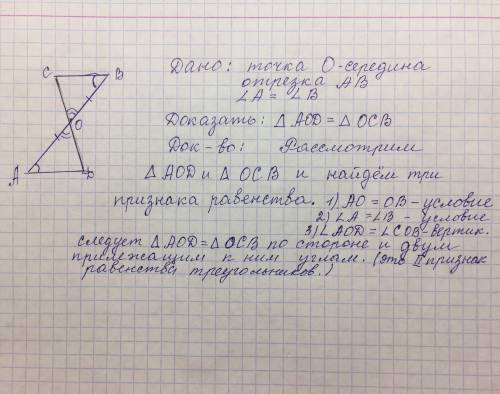 Дано: точка О-середина
отрезка АВ
∠A = ∠B
Доказать: △AOD = △OCB
Док-во: Рассмотрим
△AOD и △OCB и найдём три
признака равенства. 1) AO = OB - условие
2) ∠A = ∠B - условие
3) ∠AOD = ∠COB - вертик.
следует △AOD = △OCB по стороне и двум
прилежащим к ним углам. (это II признак
равенства треугольников.)
C B
O
A D